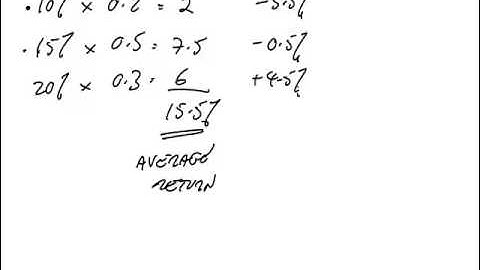 .10% x 0.2 = 2 -5.5%
.15% x 0.5 = 7.5 -0.5%
20% x 0.3 = 6 +4.5%
15.5%
AVERAGE
RETURN